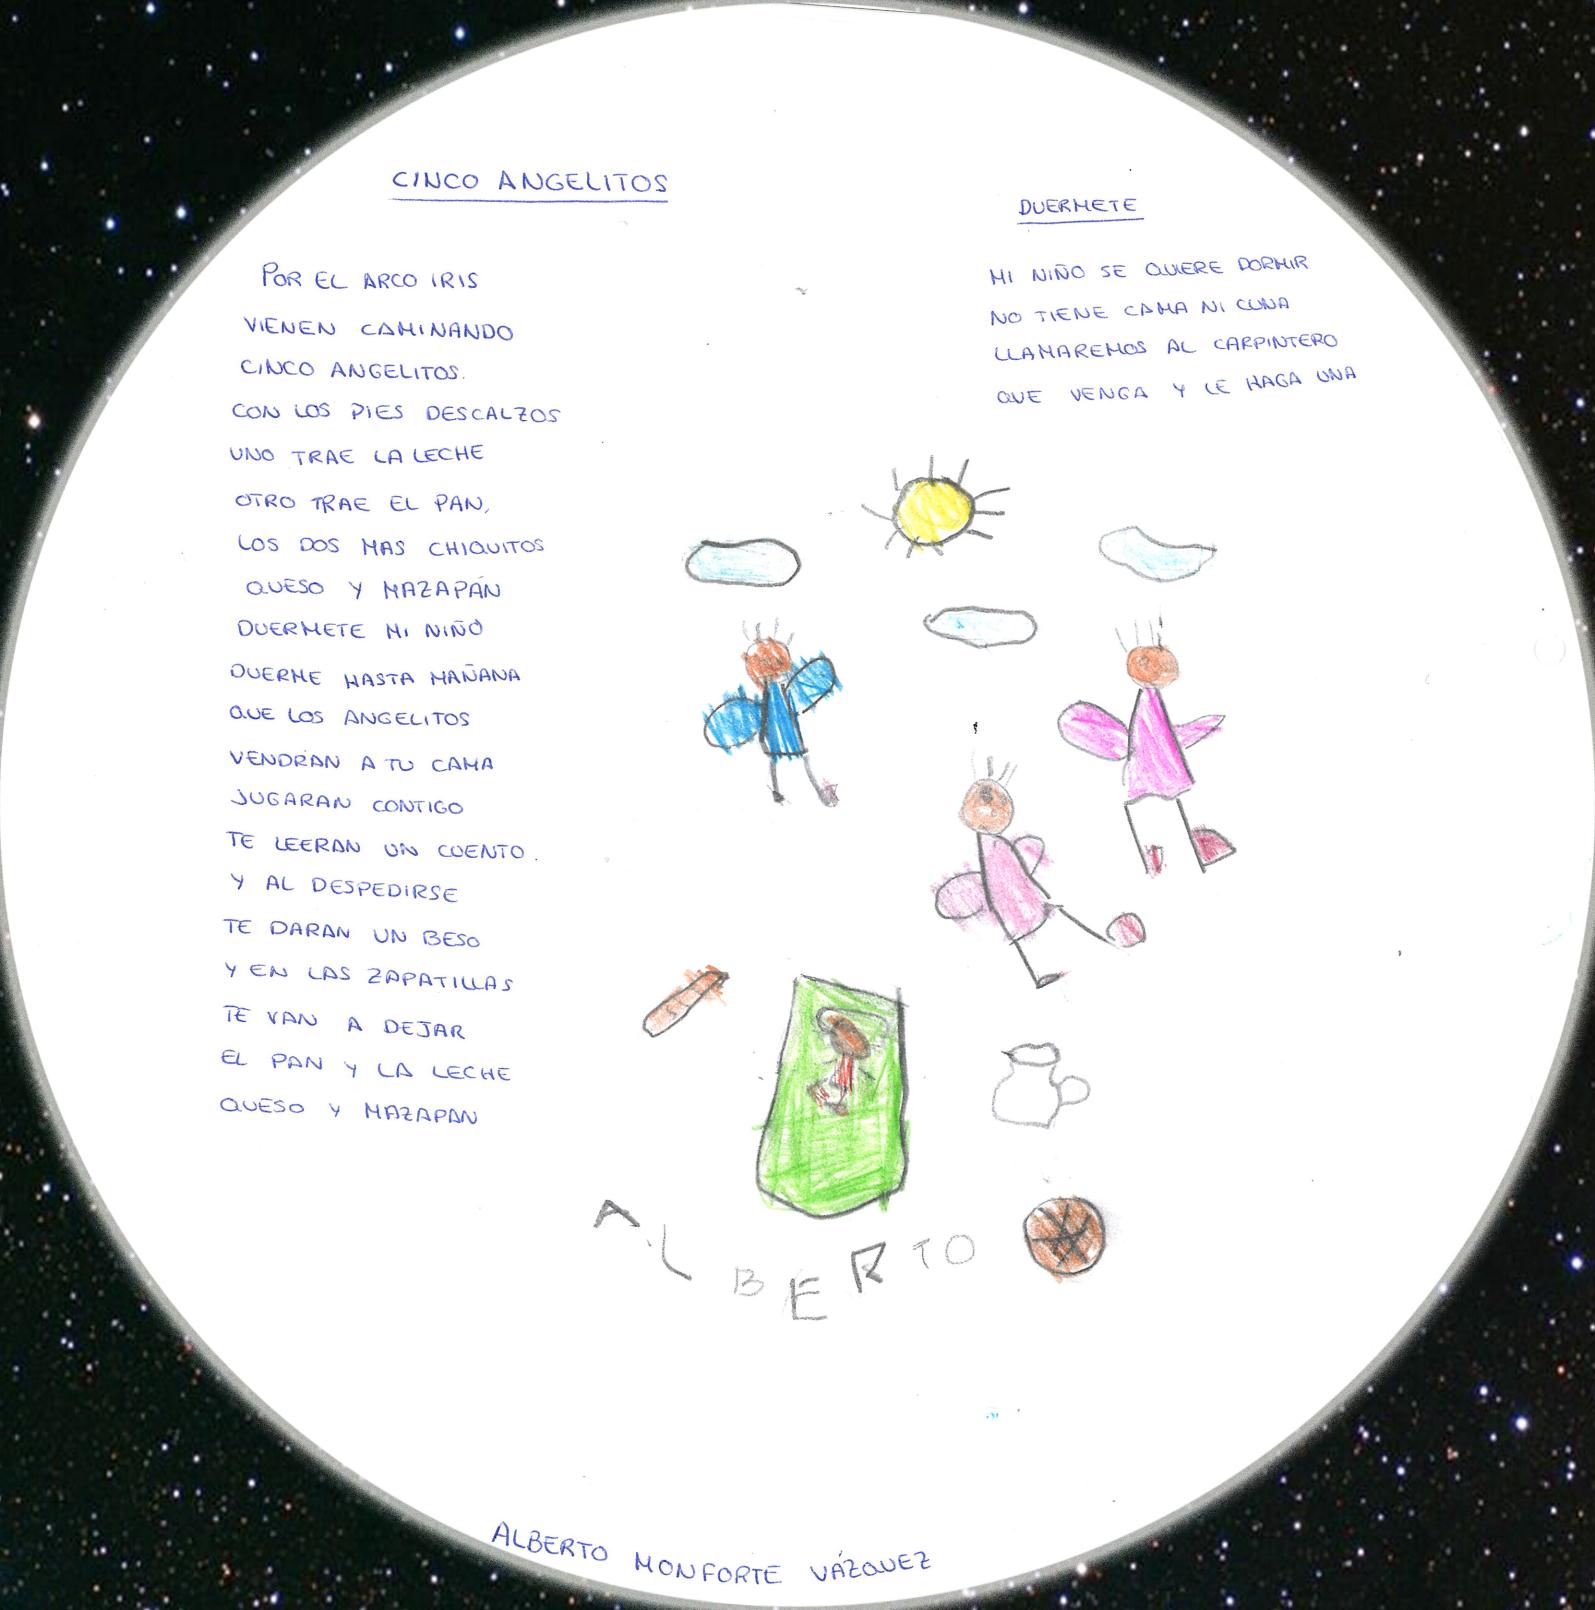 CINCO ANGELITOS
POR EL ARCO IRIS
VIENEN CAMINANDO
CINCO ANGELITOS.
CON LOS PIES DESCALZOS
UNO TRAE LA LECHE
OTRO TRAE EL PAN,
LOS DOS MAS CHIQUITOS
QUESO Y MAZAPÁN
DUERMETE MI NIÑO
DUERME HASTA MAÑANA
QUE LOS ANGELITOS
VENDRAN A TU CAMA
JUGARAN CONTIGO
TE LEERAN UN CUENTO.
Y AL DESPEDIRSE
TE DARAN UN BESO
Y EN LAS ZAPATILLAS
TE VAN A DEJAR
EL PAN Y LA LECHE
QUESO Y MAZAPAN
DUERMETE
MI NIÑO SE QUIERE DORMIR
NO TIENE CAMA NI CUNA
LLAMAREMOS AL CARPINTERO
QUE VENGA Y LE HAGA UNA
ALBERTO
ALBERTO MONFORTE VÁZQUEZ